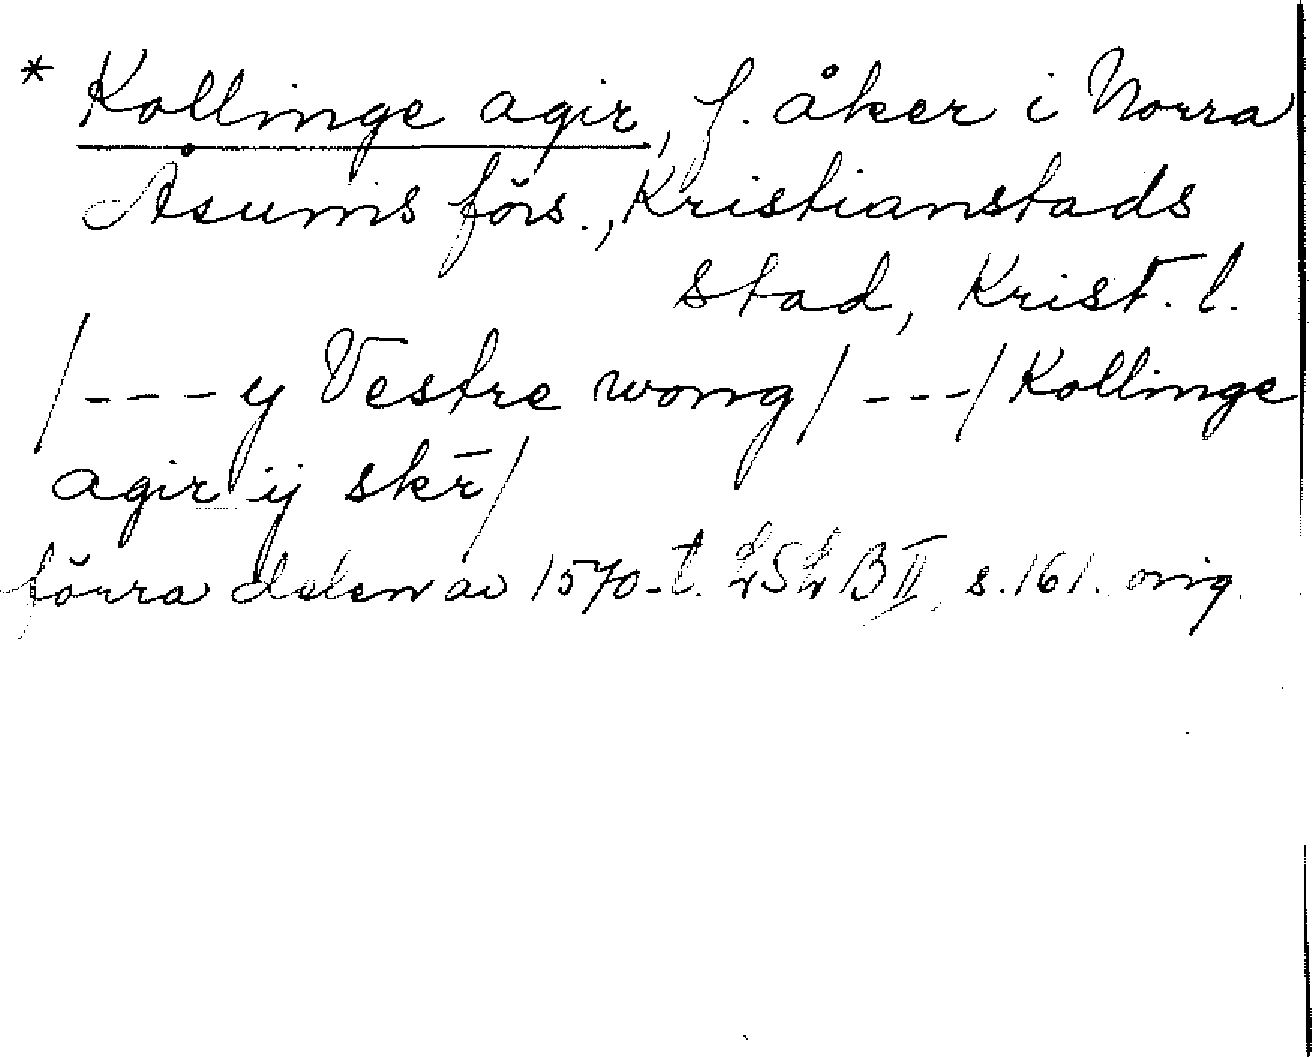 * Kollinge agir, f. åker i Norra
Åsums förs., Kristianstads
stad, Krist. l.
/---y Vestre wong/---/Kollinge
agir ij skr̄/
förra delen av 1570-t. LSLB II, s. 161. orig.